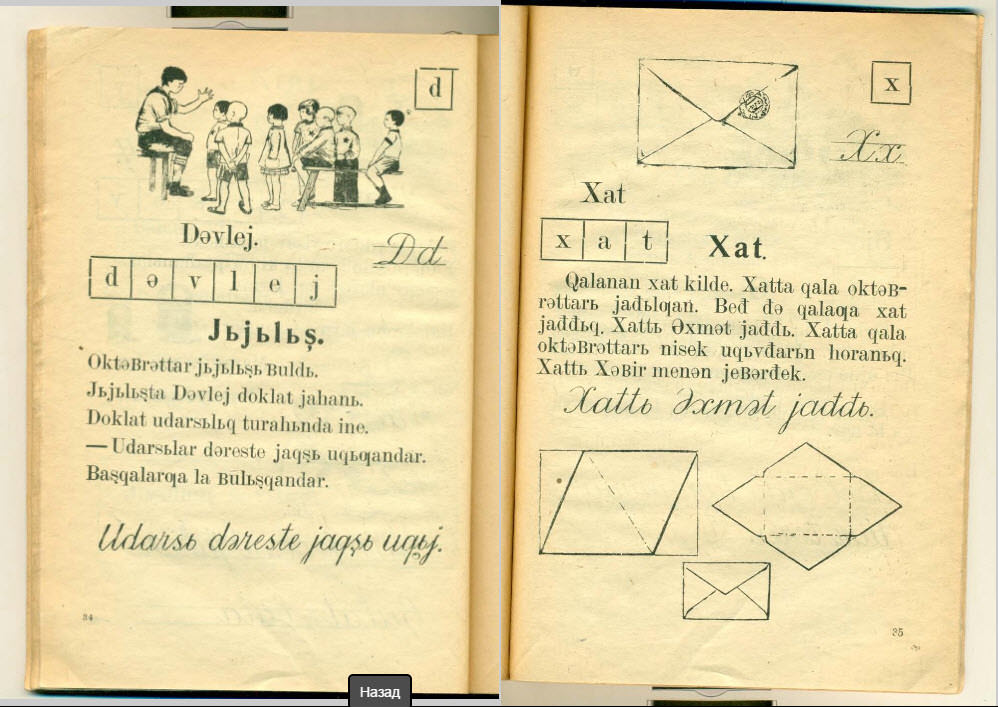 d
Dəvlej.
Dd
d ə v l e j
Jьjьlьş.
Oktəʙrəttar jьjьlьşь ʙuldь.
Jьjьlьşta Dəvlej doklat jahanь.
Doklat udarsьlьq turahьnda ine.
— Udarsьlar dəreste jaqşь uqьƣandar.
Başqalarƣa la ʙulьşqandar.
Udarsь dəreste jaqşь uqьj.
34
x
Xx
Xat
x a t
Xat.
Qalanan xat kilde. Xatta qala oktəʙ-
rəttarь jađьlƣan. Beđ də qalaƣa xat
jađđьq. Xattь Əxmət jađđь. Xatta qala
oktəʙrəttarь nisek uqьvđarьn horanьq.
Xattь Xəʙir menən jeʙərđek.
Xattь Əxmət jađđь.
35
Назад